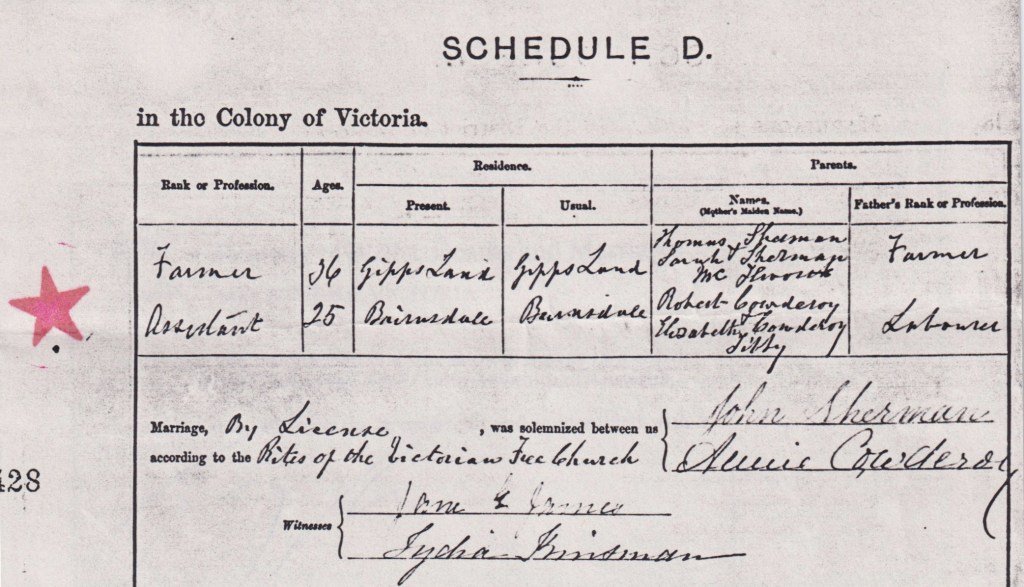 SCHEDULE D.
in the Colony of Victoria.
Rank or Profession. Ages. Residence. Parents.
Present. Usual. Names. Father's Rank or Profession.
(Mother's Maiden Name.)
Thomas Sherman
Farmer 36 Gipps Land Gipps Land Sarah Sherman Farmer
Mc
Robert Cowderoy
Assistant 25 Bairnsdale Bairnsdale Elizabeth Cowderoy Labourer
Titty
John Sherman
Marriage, By License , was solemnized between us
according to the Rites of the Victorian Free Church
Annie Cowderoy
428
Jane James
Witnesses
Lydia Kinsman